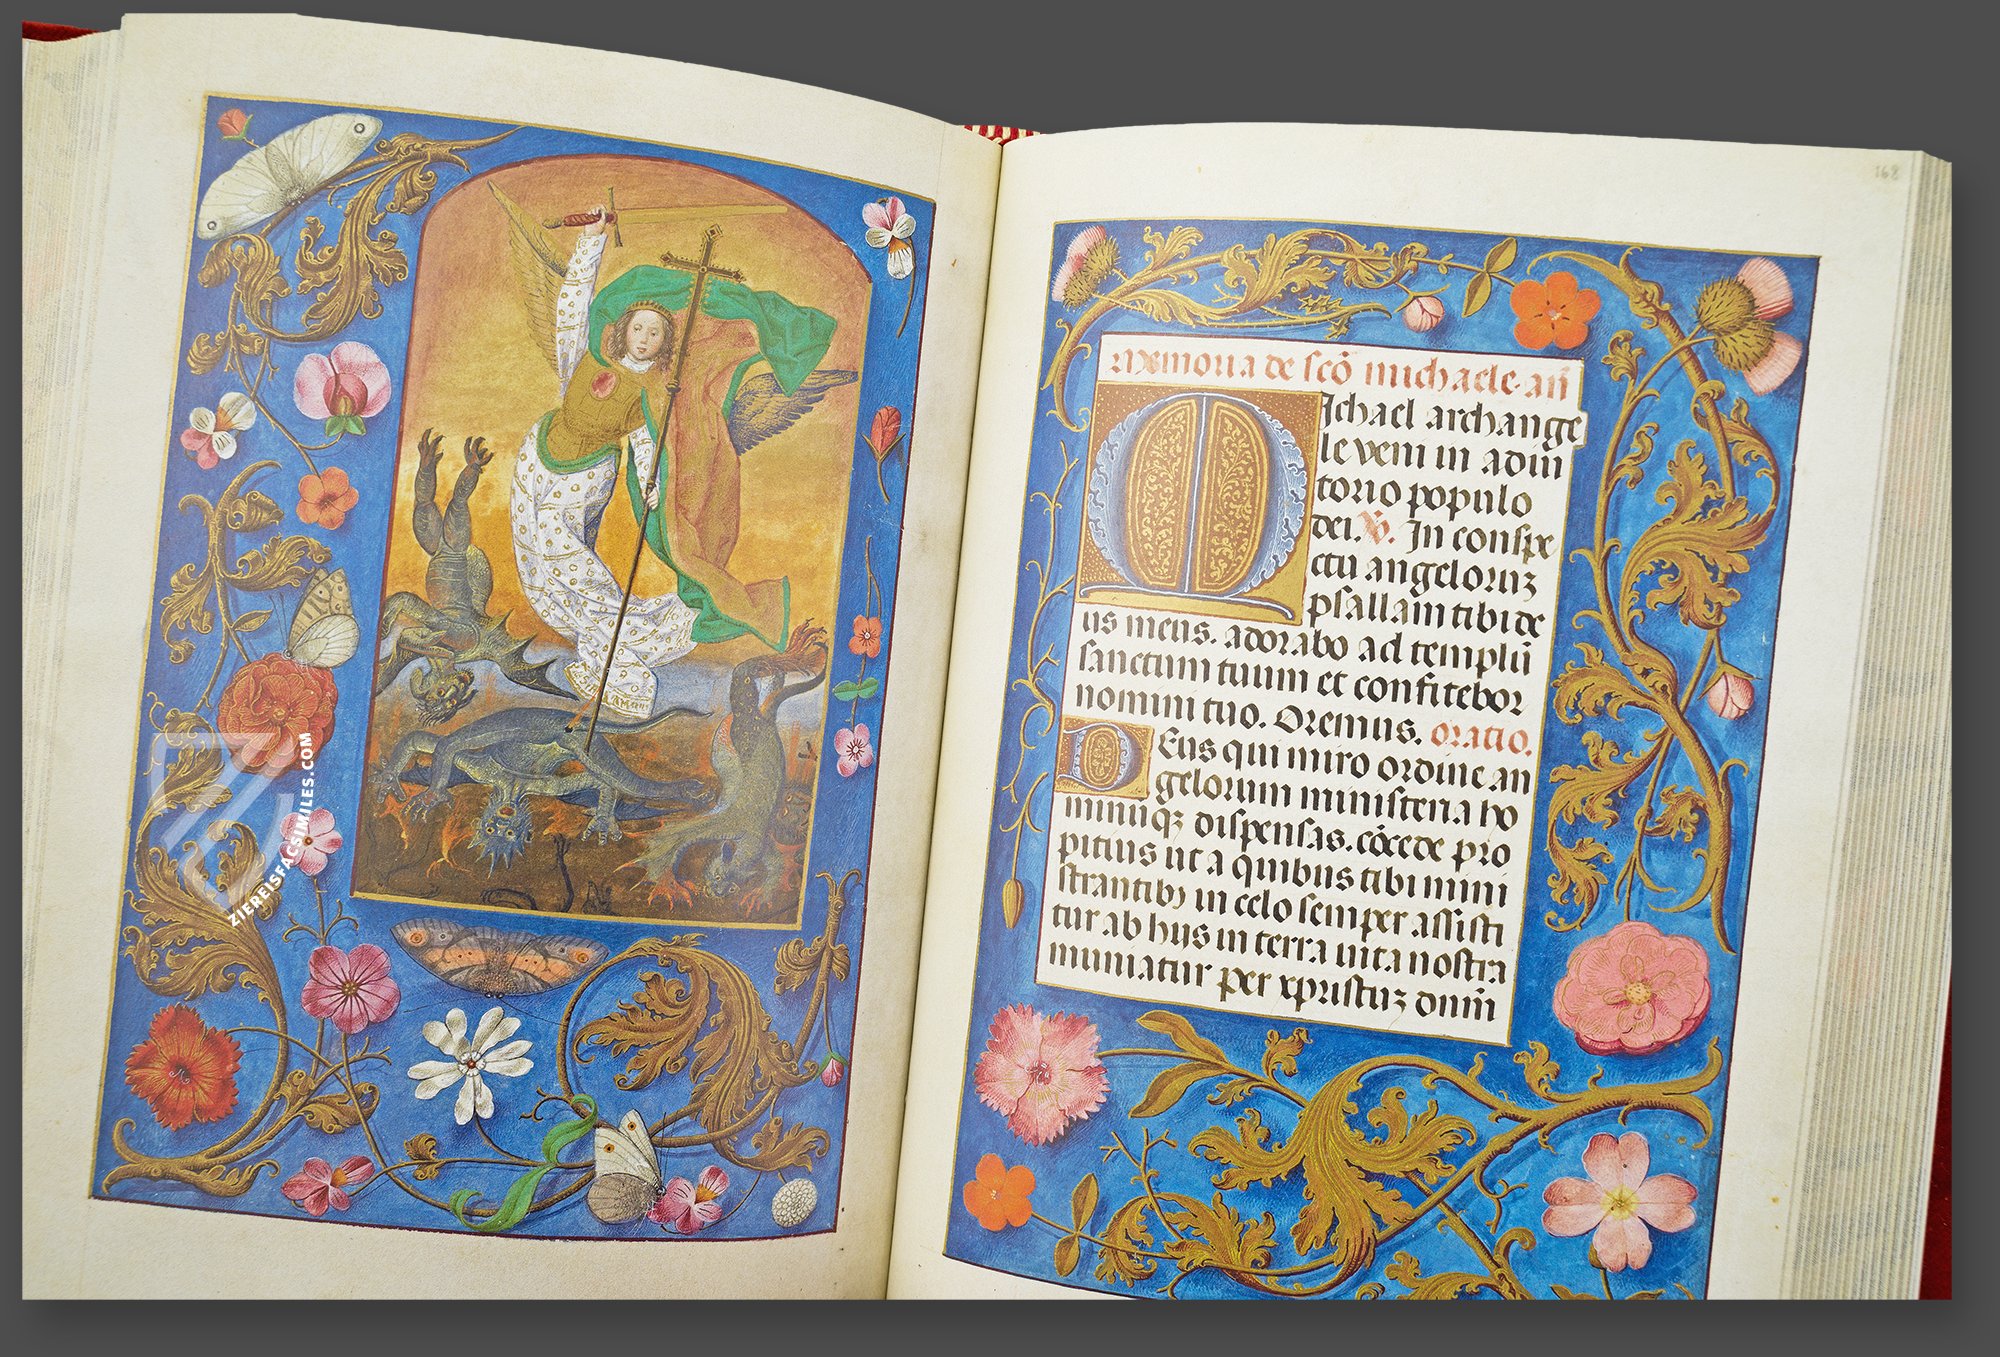 ZIEREISFACSIMILES.COM
168
Memoria de scō michaele. añ
Michael archange
le veni in adiu
torio populo
dei. V. In conspe
ctu angelorūꝫ
psallam tibi de
us meus. adorabo ad templū
sanctum tuum et confitebor
nomini tuo. Oremus. oratio.
Deus qui miro ordine an
gelorum ministeria ho
minūqꝫ dispensas. cōcede pro
pitius ut a quibus tibi mini
strantibꝫ in celo semper assisti
tur ab hijs in terra uita nostra
muniatur per xpristuꝫ dnm̄